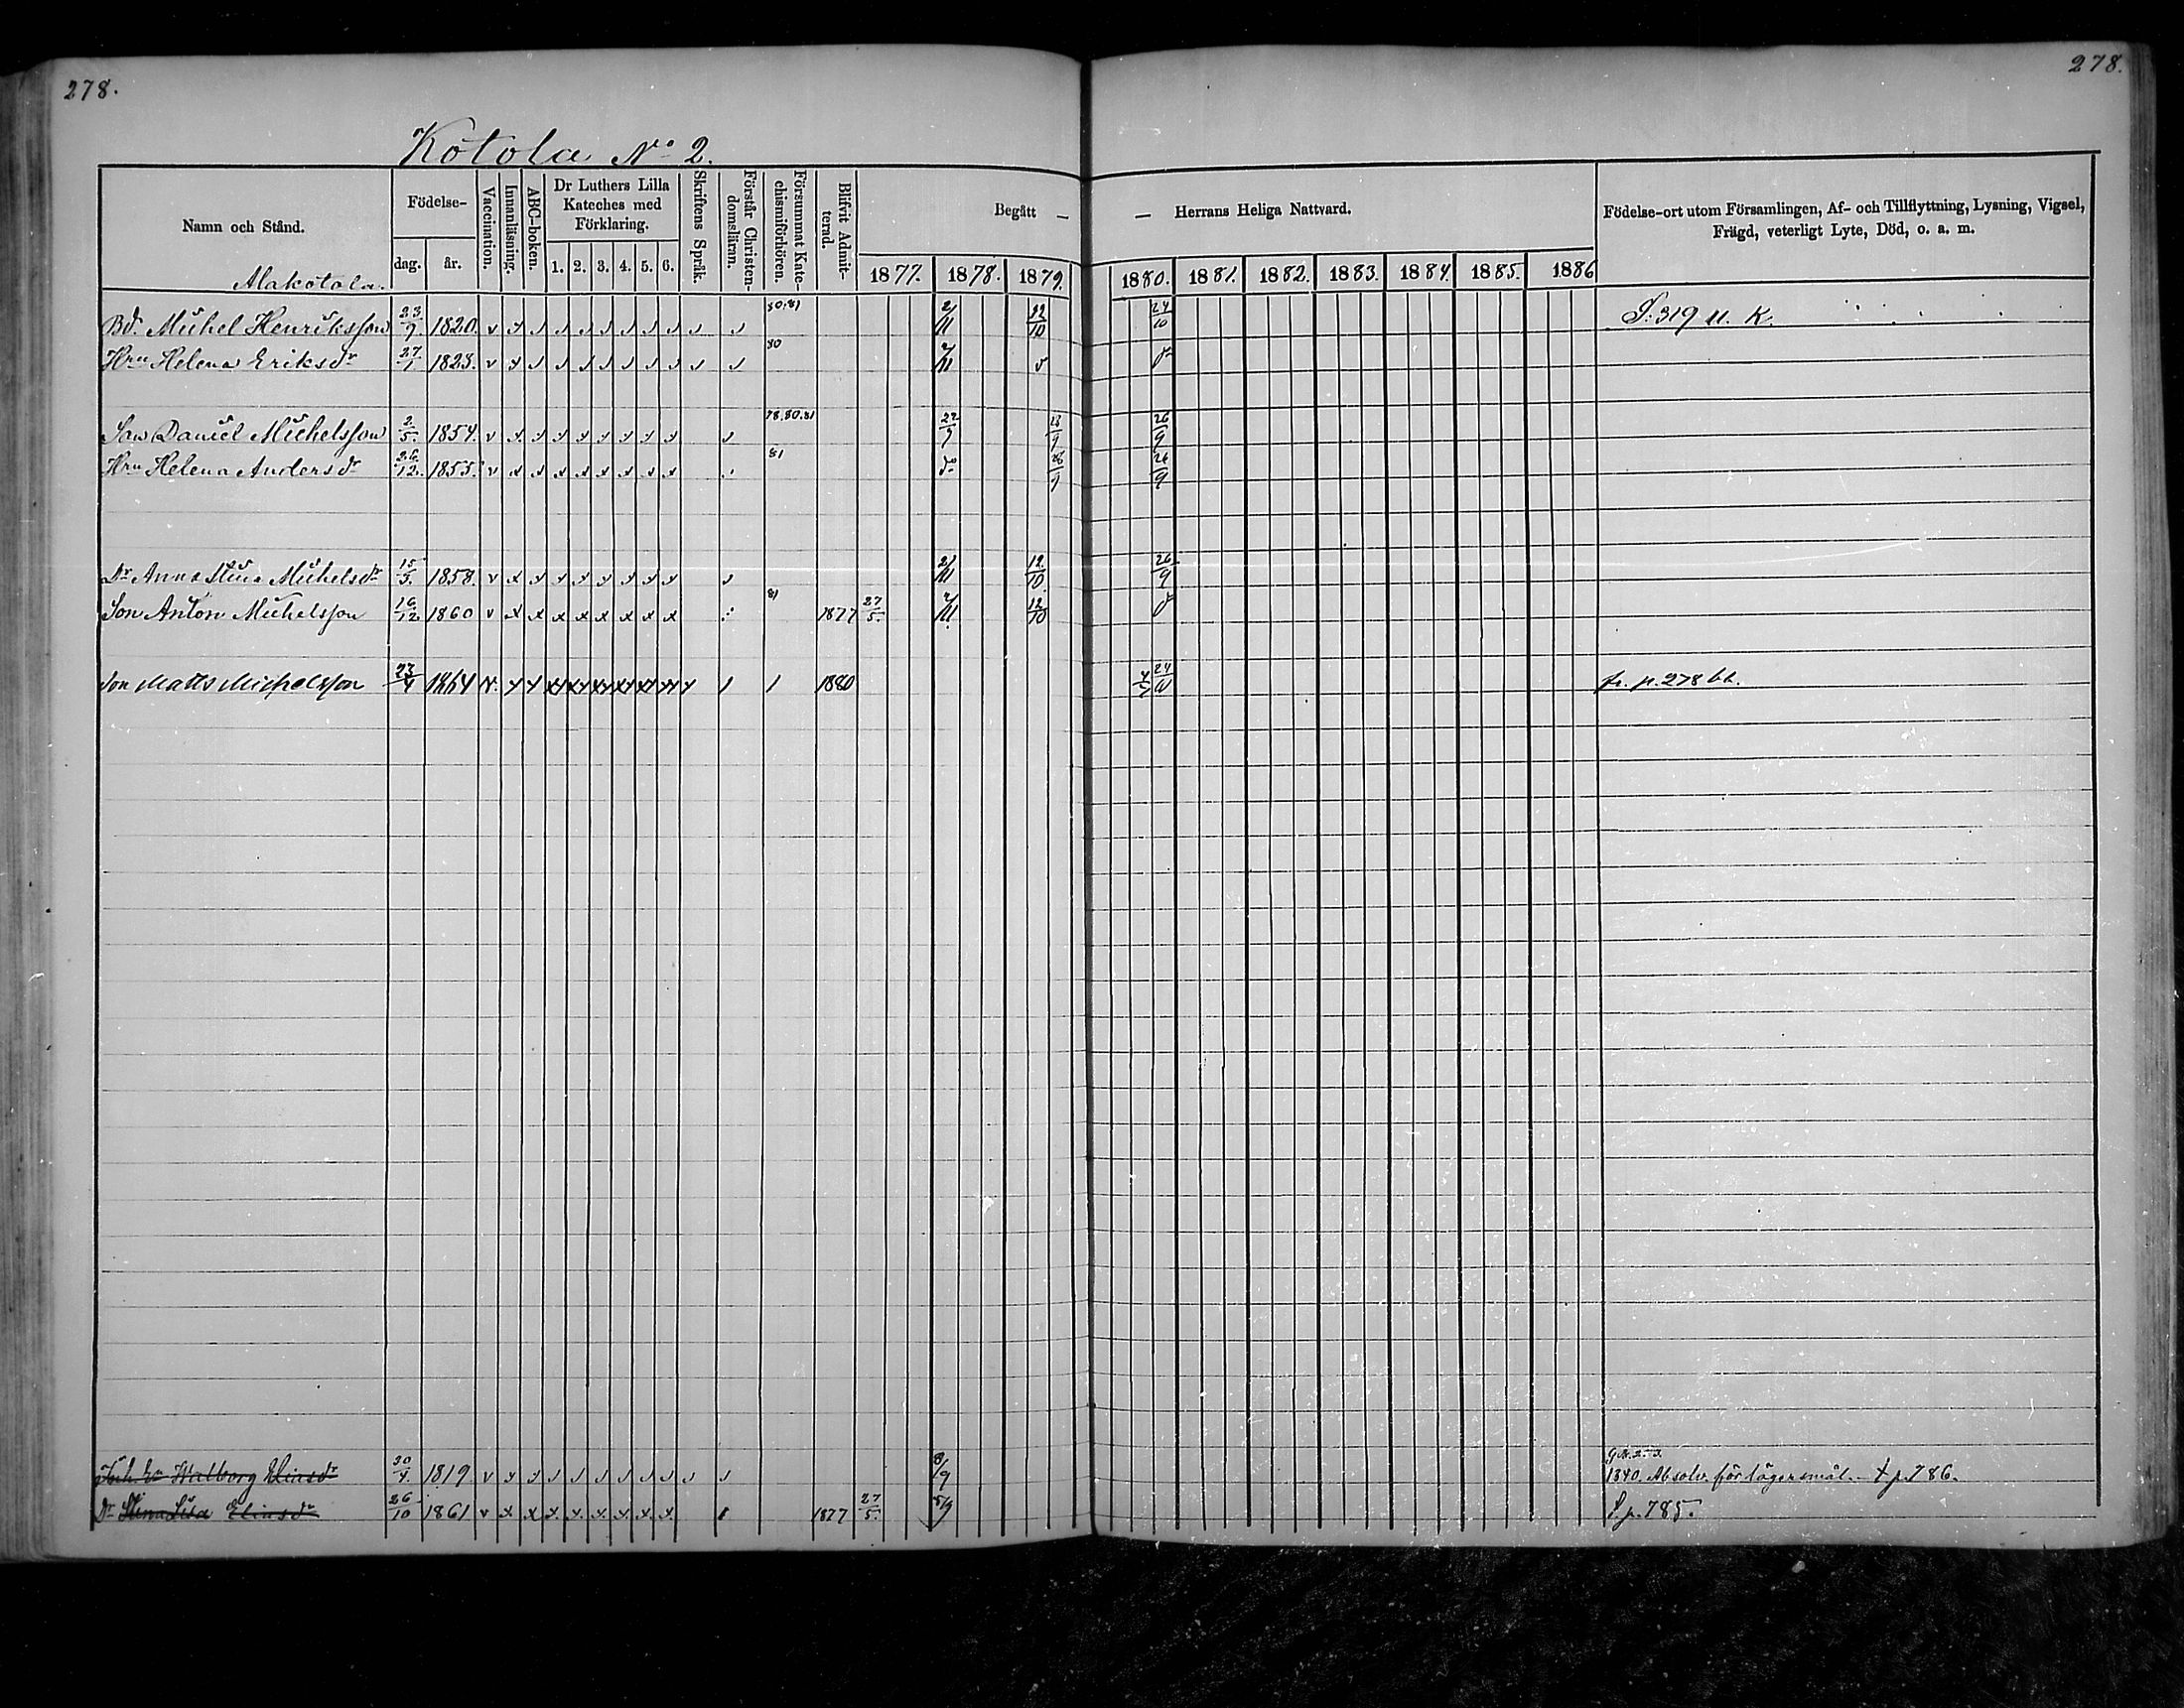 278.
278.
Kotola No 2.
Namn och Stånd.
Födelse-
dag.
år.
Vaccination.
Innanläsning.
ABC-boken.
Dr Luthers Lilla Kateches med Förklaring.
1. 2. 3. 4. 5. 6.
Skriftens Språk.
Förstår Christen-domsläran.
Försummat Kate-chismiförhören.
Blifvit Admit-terad.
Begått — — Herrans Heliga Nattvard.
1877. 1878. 1879. 1880. 1881. 1882. 1883. 1884. 1885. 1886
Födelse-ort utom Församlingen, Af- och Tillflyttning, Lysning, Vigsel, Frägd, veterligt Lyte, Död, o. a. m.
Alakotola.
Bd. Michel Henriksson 23/9 1820. v 80.81 2/11 12/10 24/10 S. 319 u. K.
Hru Helena Eriksdr 27/1 1823. v 80 2/11
Son Daniel Michelsson 2/5. 1854. v 78.80.81 22/9 28/9 26/9
Hru Helena Andersdr 26/12. 1855. v 81 do 28/9 26/9
Dr Anna Stina Michelsdr 15/5. 1858. v 2/11 12/10 26/9
Son Anton Michelsson 16/12 1860 v 81 1877 27/5. 2/11 12/10
Son Matts Michelsson 23/4 1864 v. 1 1 1880 4/7 24/10 fr. p. 278 bb.
Walborg Eliasdr 30/4. 1819 v 8/9 1840. Absolv. för lägersmål. † p. 786.
Dr Stina Lisa Eliasdr 26/10 1861 v 1877 27/5. 5/9 S. p. 785.